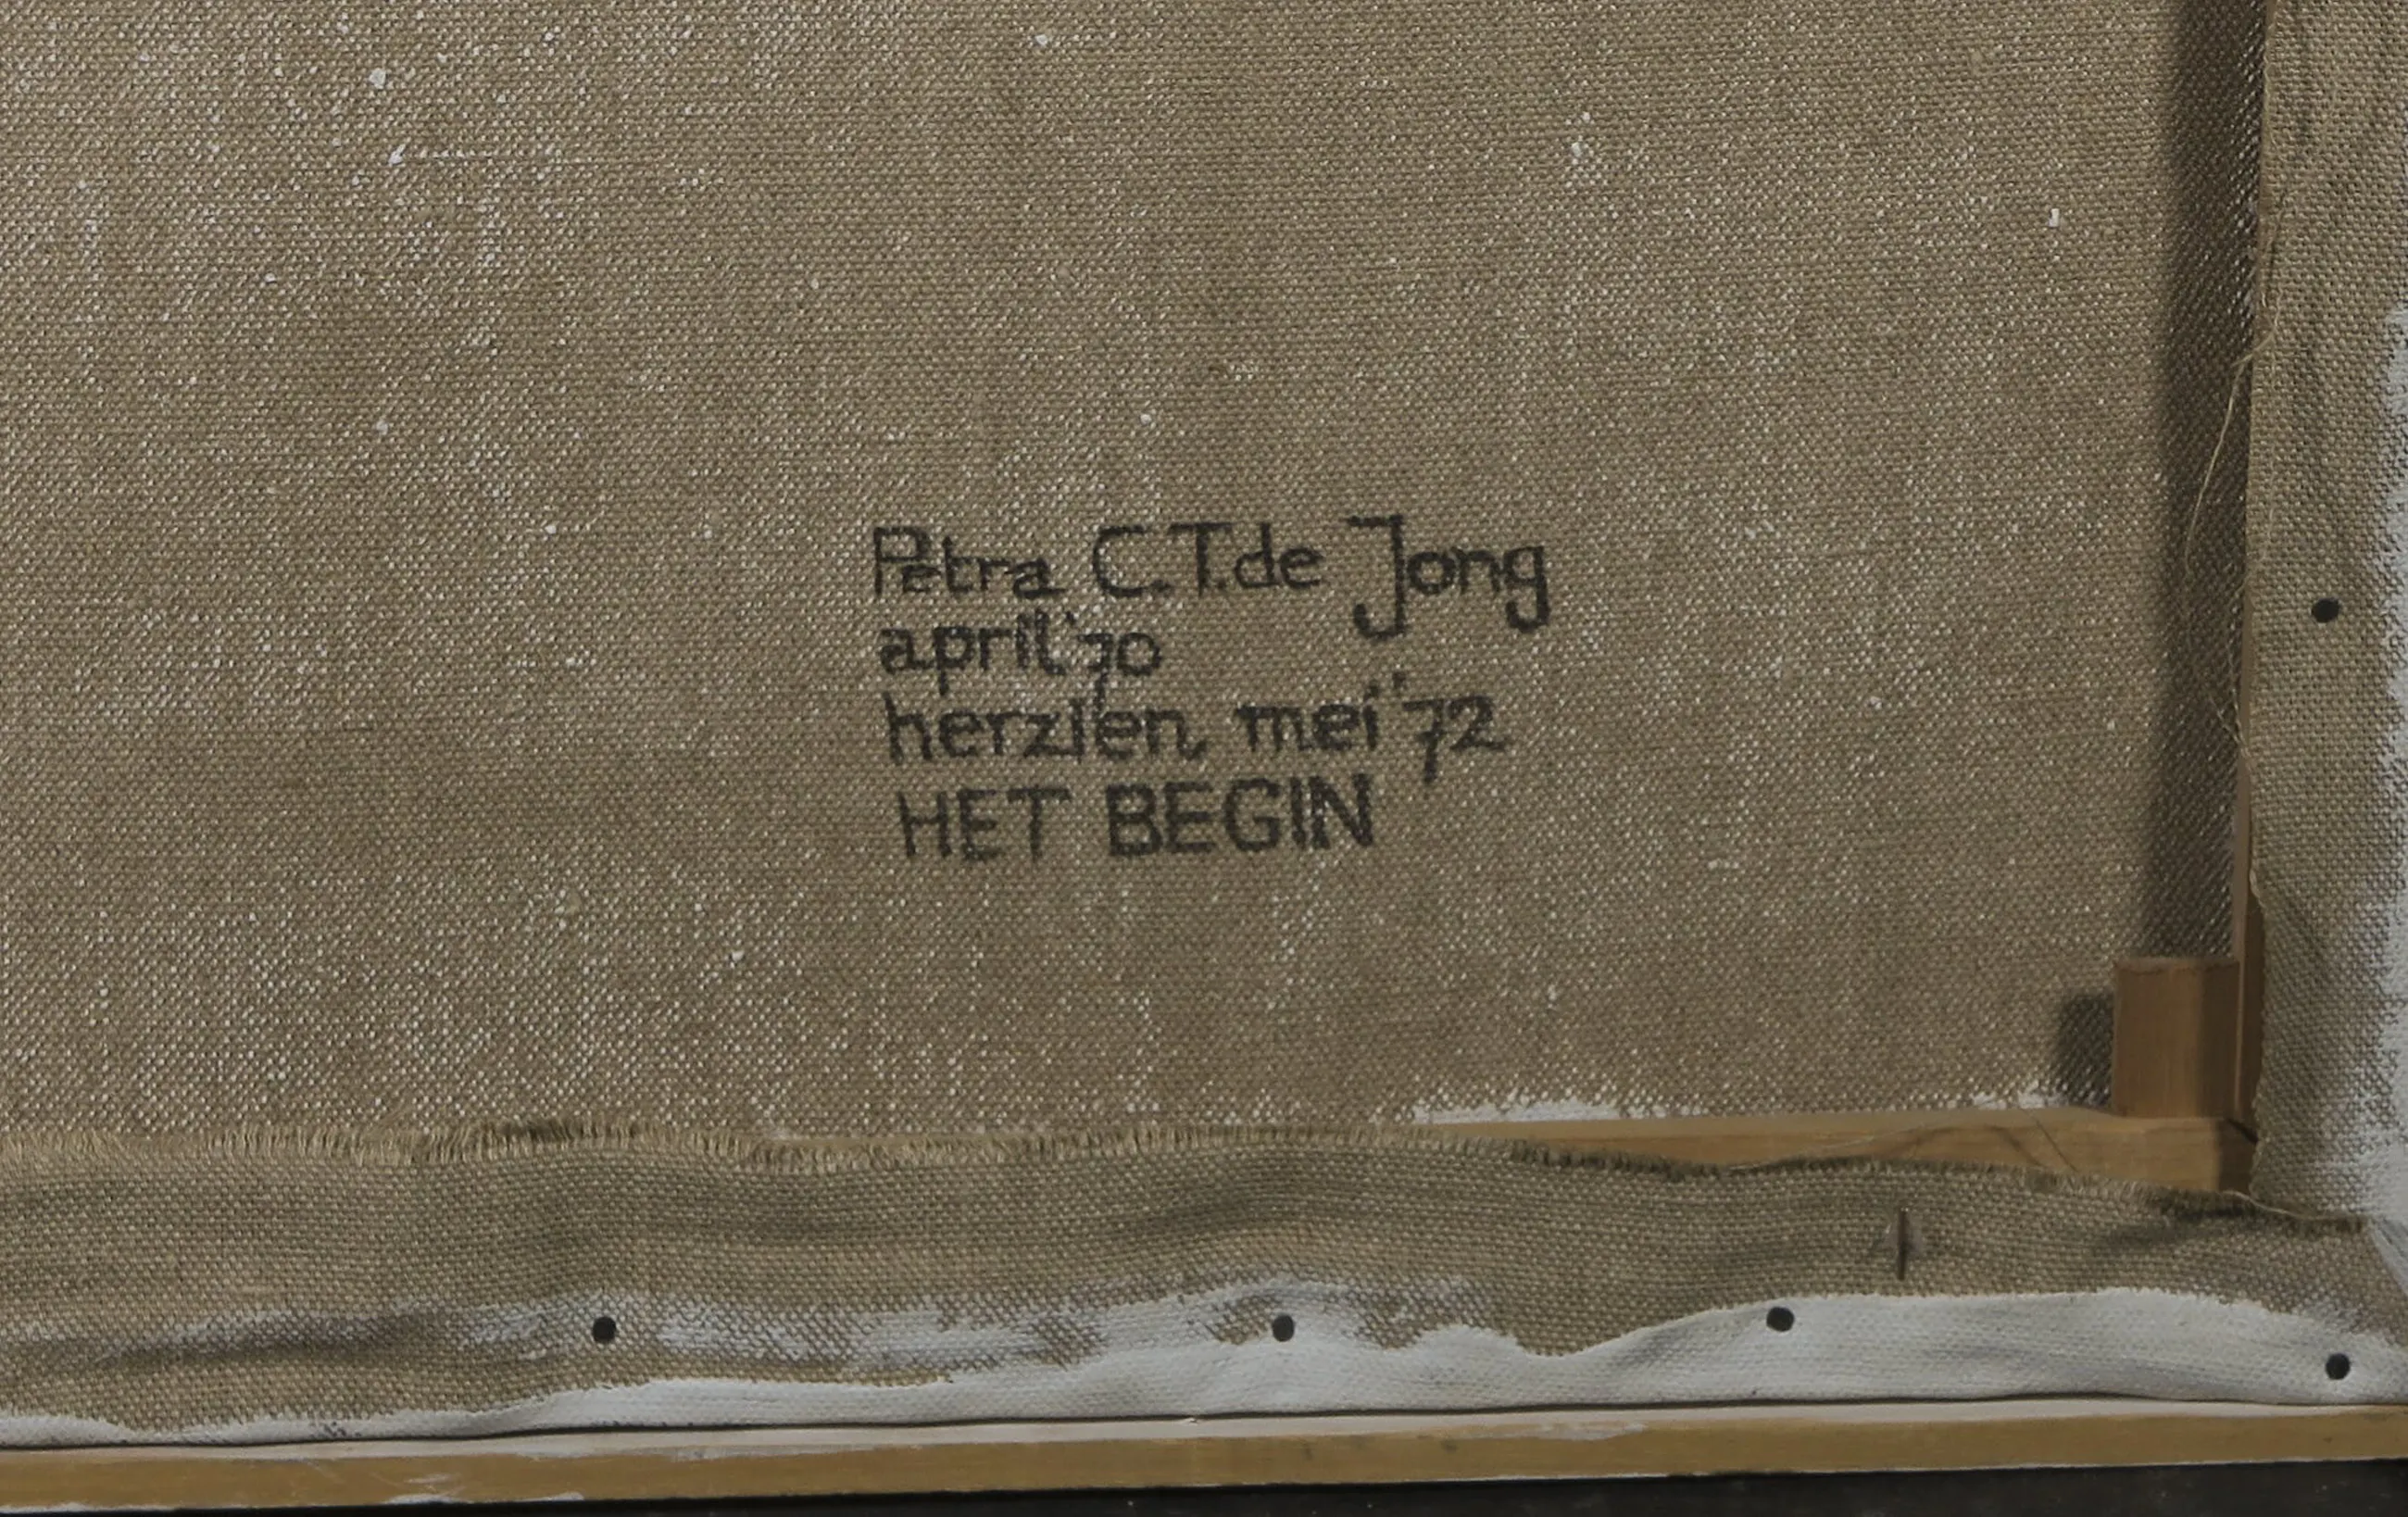 Petra C.T. de Jong
april '70
herzien mei '72
HET BEGIN